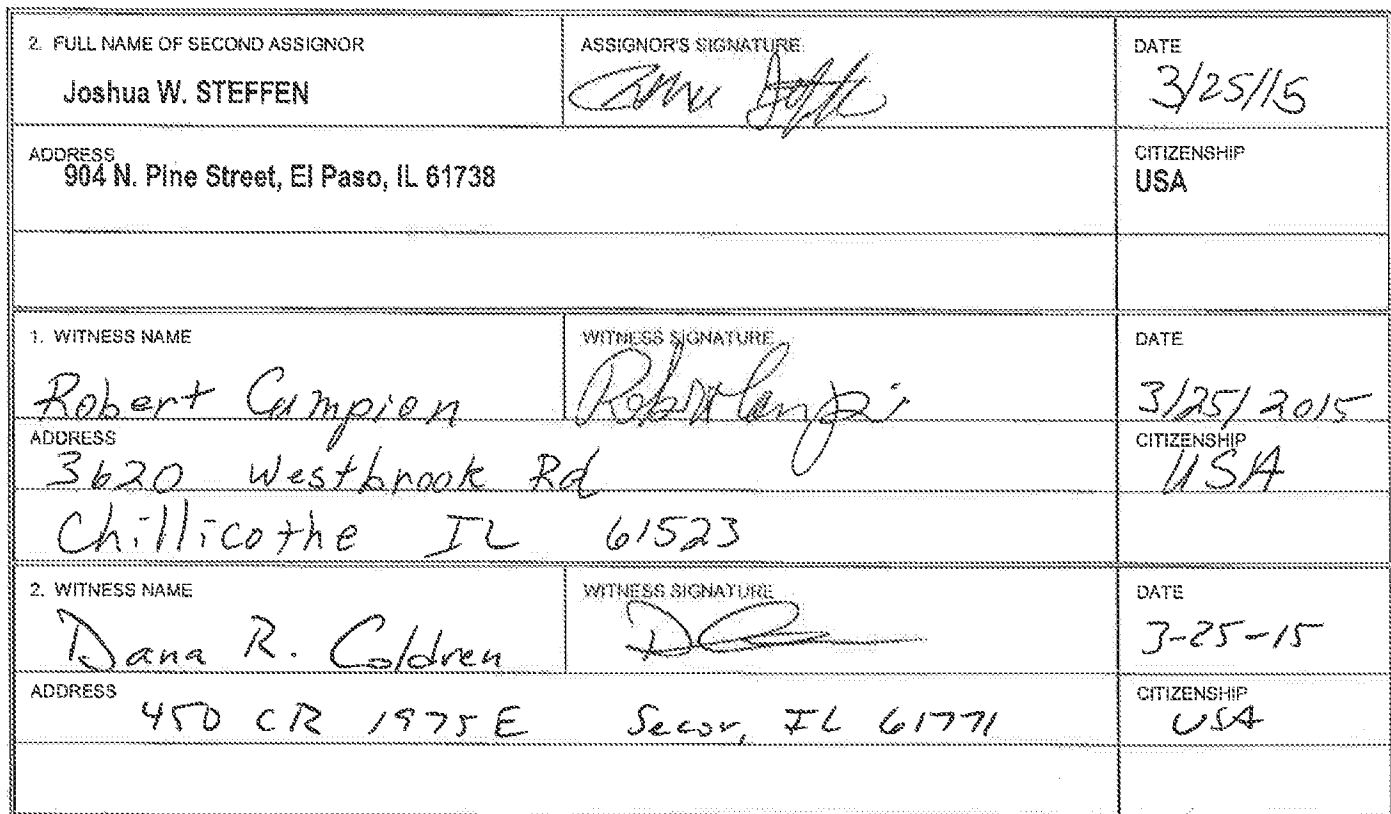 2. FULL NAME OF SECOND ASSIGNOR
Joshua W. STEFFEN
ASSIGNOR'S SIGNATURE
DATE
3/25/15
ADDRESS
904 N. Pine Street, El Paso, IL 61738
CITIZENSHIP
USA
1. WITNESS NAME
Robert Campion
WITNESS SIGNATURE
DATE
3/25/2015
ADDRESS
3620 Westbrook Rd
Chillicothe IL 61523
CITIZENSHIP
USA
2. WITNESS NAME
Dana R. Coldren
WITNESS SIGNATURE
DATE
3-25-15
ADDRESS
450 CR 1975 E Secor, IL 61771
CITIZENSHIP
USA